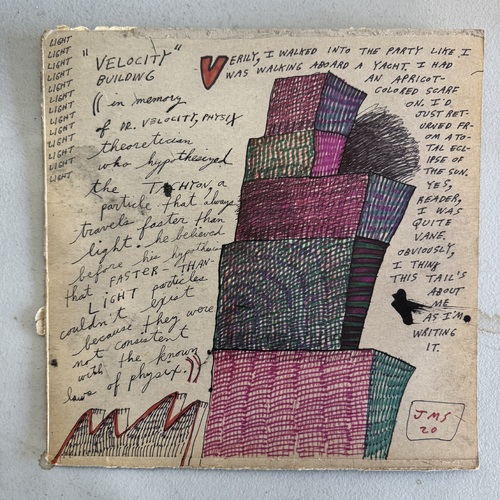 LIGHT
LIGHT
LIGHT
LIGHT
LIGHT
LIGHT
LIGHT
LIGHT
LIGHT
LIGHT
LIGHT
LIGHT
LIGHT
"VELOCITY"
BUILDING
(( in memory
of DR. VELOCITY, PHYSIX
theoretician
who hypothesized
the TACHYON, a
particle that always
travels faster than
light. he believed
before his hypothesis
that FASTER-THAN-
LIGHT particles
couldn't exist
because they were
not consistent
with the known
laws of physix. ))
VERILY, I WALKED INTO THE PARTY LIKE I
WAS WALKING ABOARD A YACHT, I HAD
AN APRICOT-
COLORED SCARF
ON. I'D
JUST RET-
URNED FR-
OM A TO-
TAL ECL-
IPSE OF
THE SUN.
YES,
READER,
I WAS
QUITE
VANE,
OBVIOUSLY,
I THINK
THIS TAIL'S
ABOUT
ME
AS I'M
WRITING
IT.
JMS
20